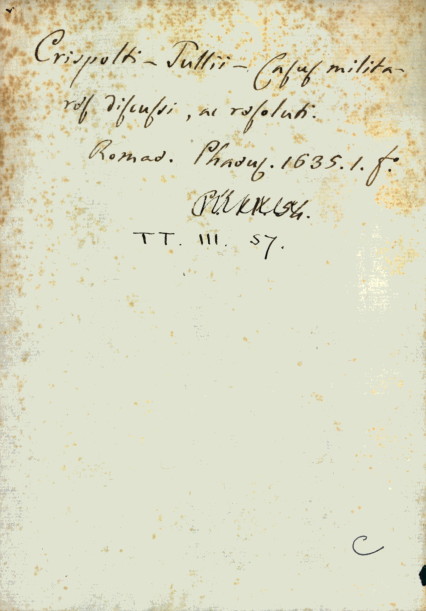 Crispolti – Tullii – Casus milita-
res discussi, ac resoluti.
Romae. Phaeus. 1635. 1. f.º
TT. III. 57.
C